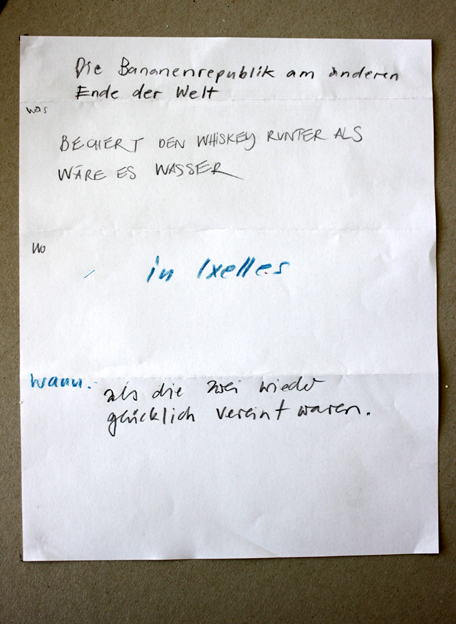 Die Bananenrepublik am anderen
Ende der Welt
was
BECHERT DEN WHISKEY RUNTER ALS
WÄRE ES WASSER
Wo
in Ixelles
Wann.
als die zwei wieder
glücklich vereint waren.